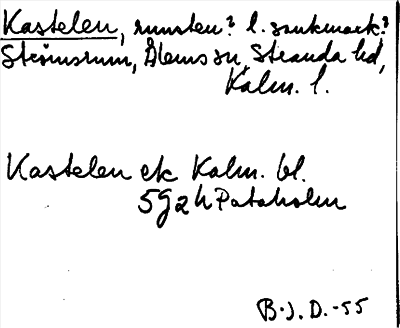 Kastelen, runsten? l. sankmark?
Strömsrum, Ålems sn, Stranda hd,
Kalm. l.
Kastelen ek Kalm. bl.
5g2h Pataholm
B.J.D.-55